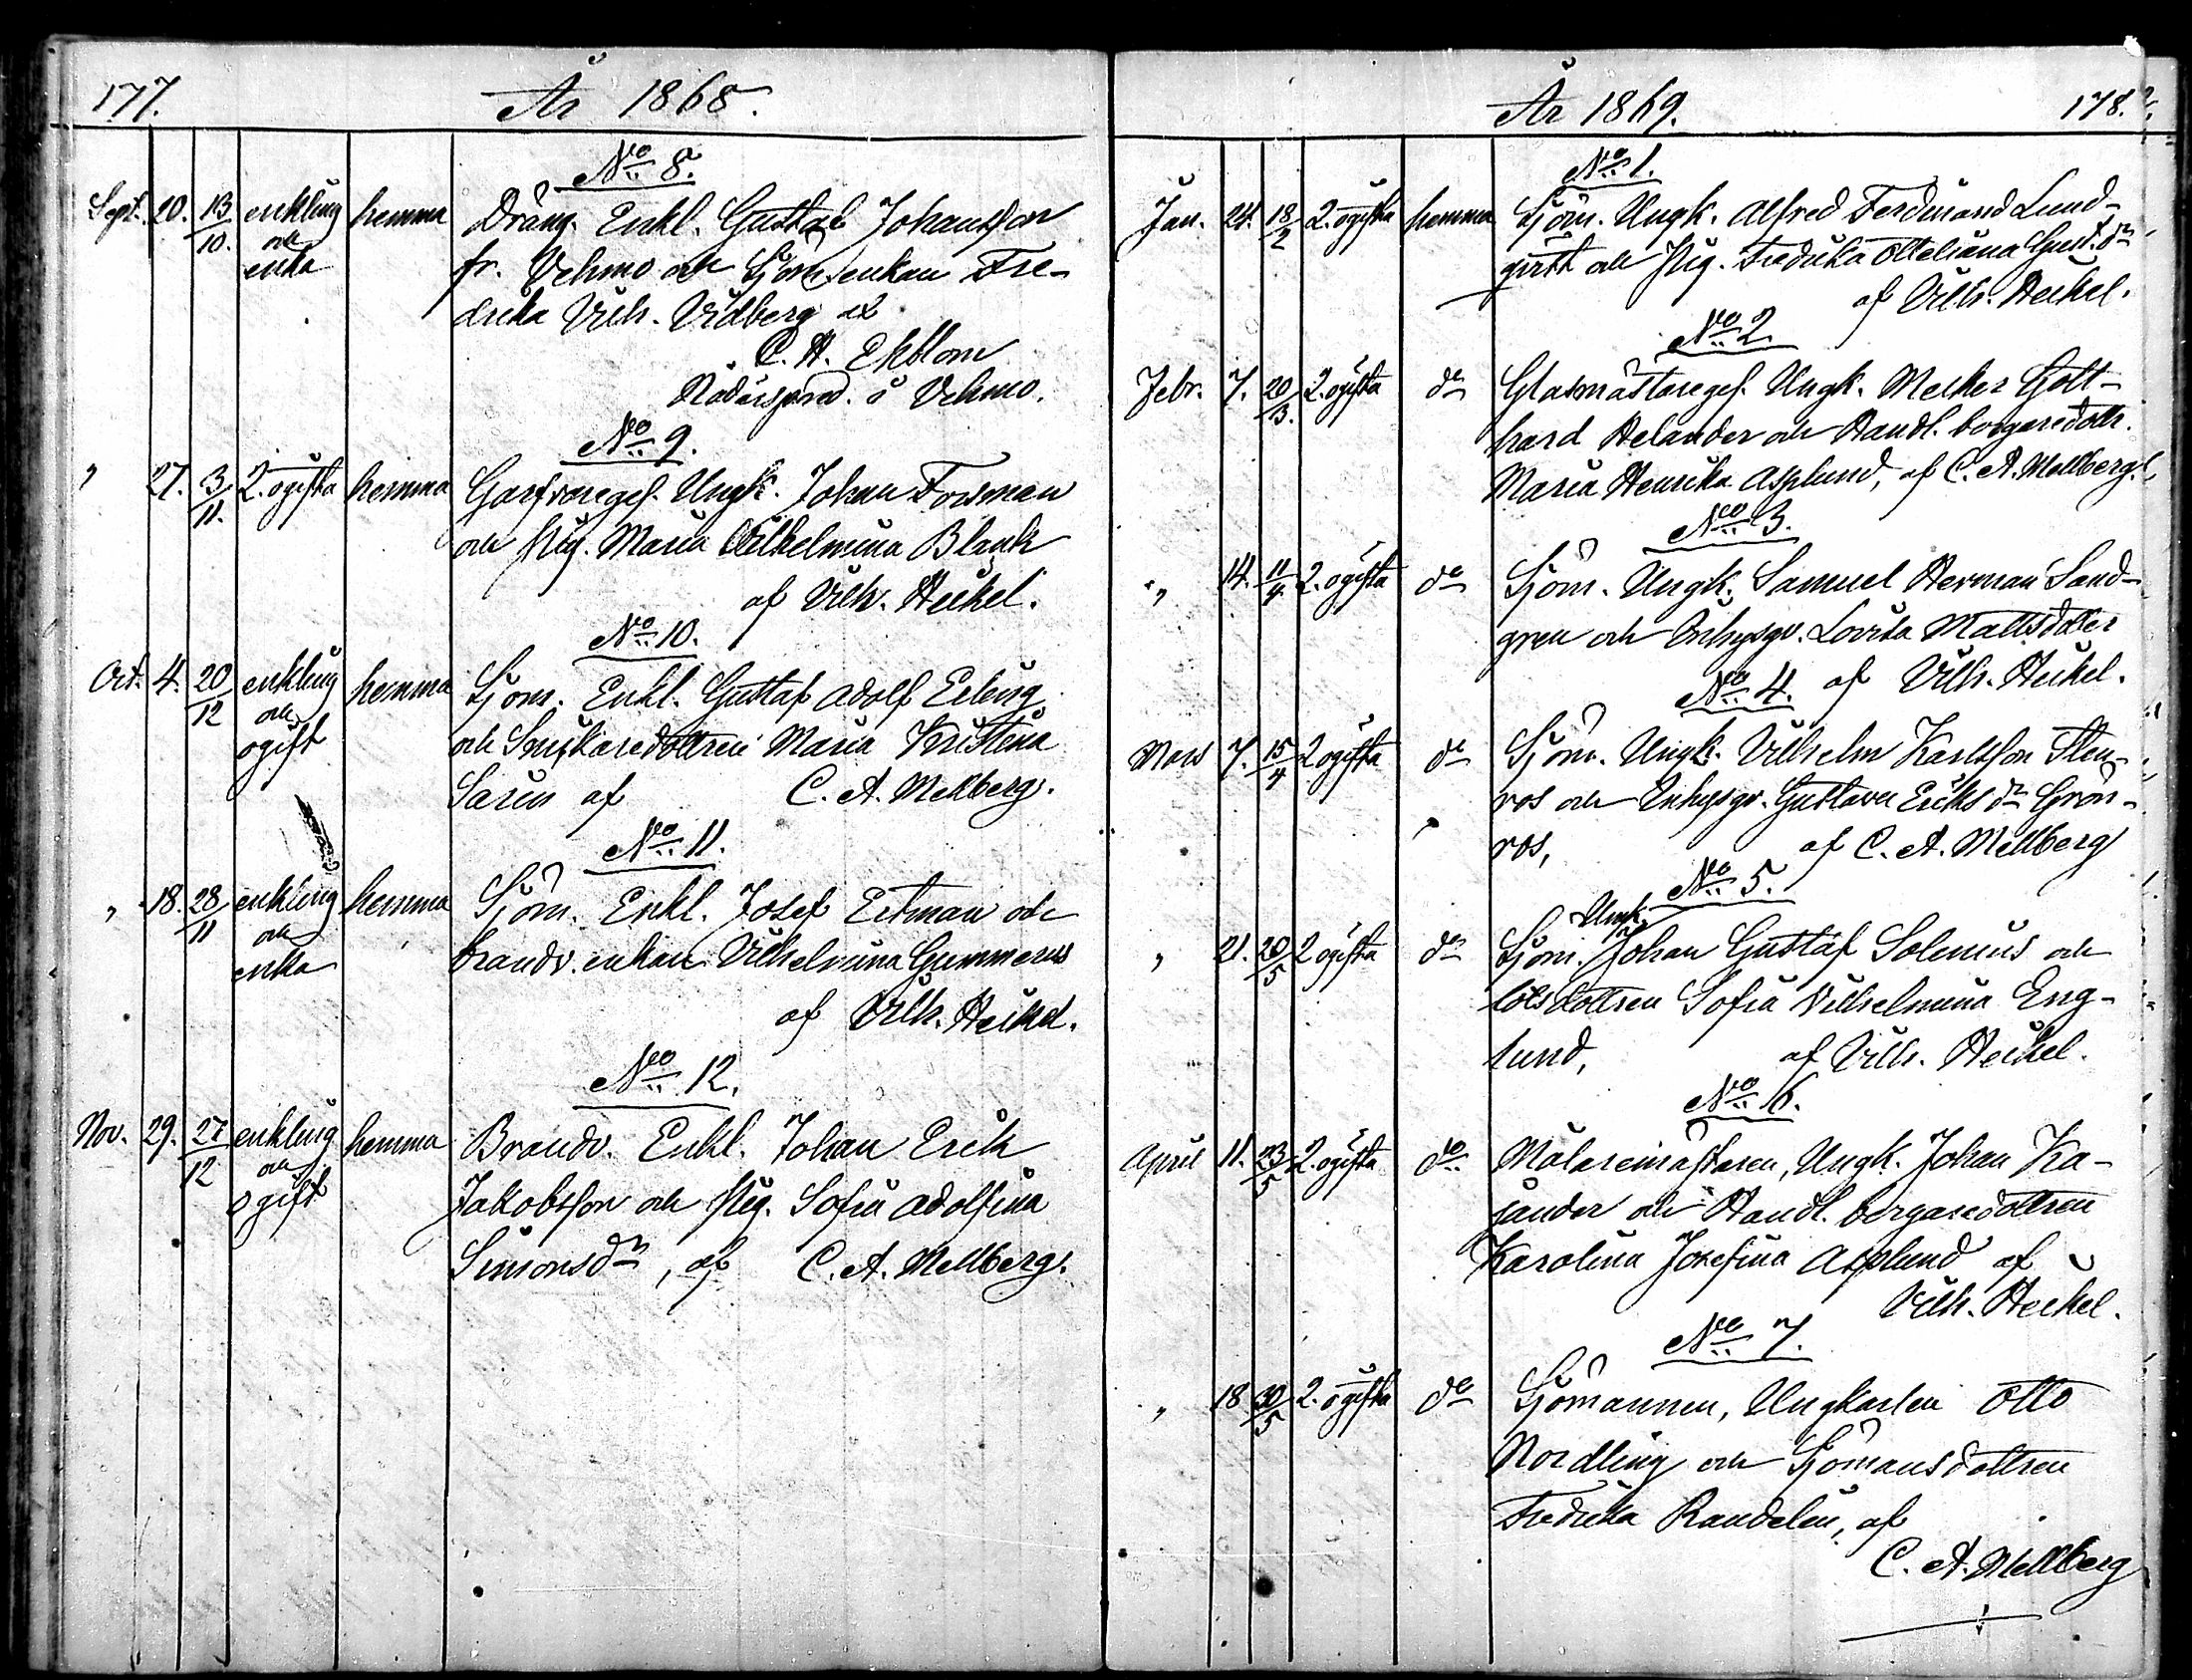 177.
År 1868.
No 8.
Sept. 20. 13/10. enkling och enka hemma Dräng. Enkl. Gustaf Johansson
fr. Vehmo och Sjömsenkan Fre-
drika Vilh. Vidberg af
C. H. Ekblom
Nådårspred. i Vehmo.
No 9.
" 27. 3/11. 2. ogifta hemma Garfvaregef. Ungk. Johan Forsman
och Pig. Maria Vilhelmina Blank
af Vilh. Heikel.
No 10.
Oct. 4. 20/12 enkling och ogift hemma Sjöm. Enkl. Gustaf Adolf Erling
och Snickaredottren Maria Kristina
Sarin af C. A. Mellberg.
No 11.
" 18. 28/11 enkling och enka hemma Sjöm. Enkl. Josef Ertman och
brandv. enkan Vilhelmina Gummerus
af Vilh. Heikel.
No 12.
Nov. 29. 27/12 enkling och ogift hemma Brandv. Enkl. Johan Erik
Jakobsson och Pig. Sofia Adolfina
Simonsdr, af C. A. Mellberg.
År 1869.
178.
No 1.
Jan. 24. 18/2 2. ogifta hemma Sjöm. Ungk. Alfred Ferdinand Lund-
qvist och Pig. Fredrika Otteliana Gust. dr
af Vilh. Heikel.
No 2.
Febr. 7. 20/3. 2. ogifta do Glasmästaregef. Ungk. Melker Gott-
hard Helander och Handl. borgaredottr.
Maria Henrika Asplund, af C. A. Mellberg.
No 3.
" 14. 11/4. 2. ogifta do Sjöm. Ungk. Samuel Herman Sand-
gren och Inhysqv. Lovisa Mattsdotter
af Vilh. Heikel.
No 4.
Mars 7. 15/4 2 ogifta do Sjöm. Ungk. Vilhelm Karlsson Sten-
ros och Inhysqv. Gustava Eriksdr Grön-
ros, af C. A. Mellberg
No 5.
Ungk.
" 21. 20/5 2 ogifta do Sjöm. Johan Gustaf Solenius och
lotsdottren Sofia Vilhelmina Eng-
lund, af Vilh. Heikel.
No 6.
April 11. 23/5 2. ogifta do Målaremästaren, Ungk. Johan Ka-
jander och Handl. borgaredottren
Karolina Josefina Asplund af
Vilh. Heikel.
No 7.
" 18 30/5 2. ogifta do Sjömannen, Ungkarlen Otto
Nordling och Sjömansdottren
Fredrika Randelin, af
C. A. Mellberg